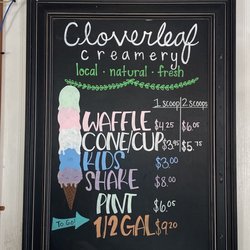 Cloverleaf
creamery
local · natural · fresh
1 scoop 2 scoops
WAFFLE $4.25 $6.05
CONE/CUP $3.95 $5.75
KIDS $3.00
SHAKE $8.00
PINT $6.05
TO GO 1/2 GAL $9.20